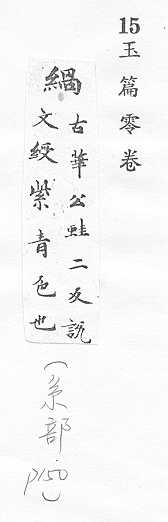 15
玉篇零卷
緺古華公蛙二反說
文綬紫青色也
(糸部
p150)